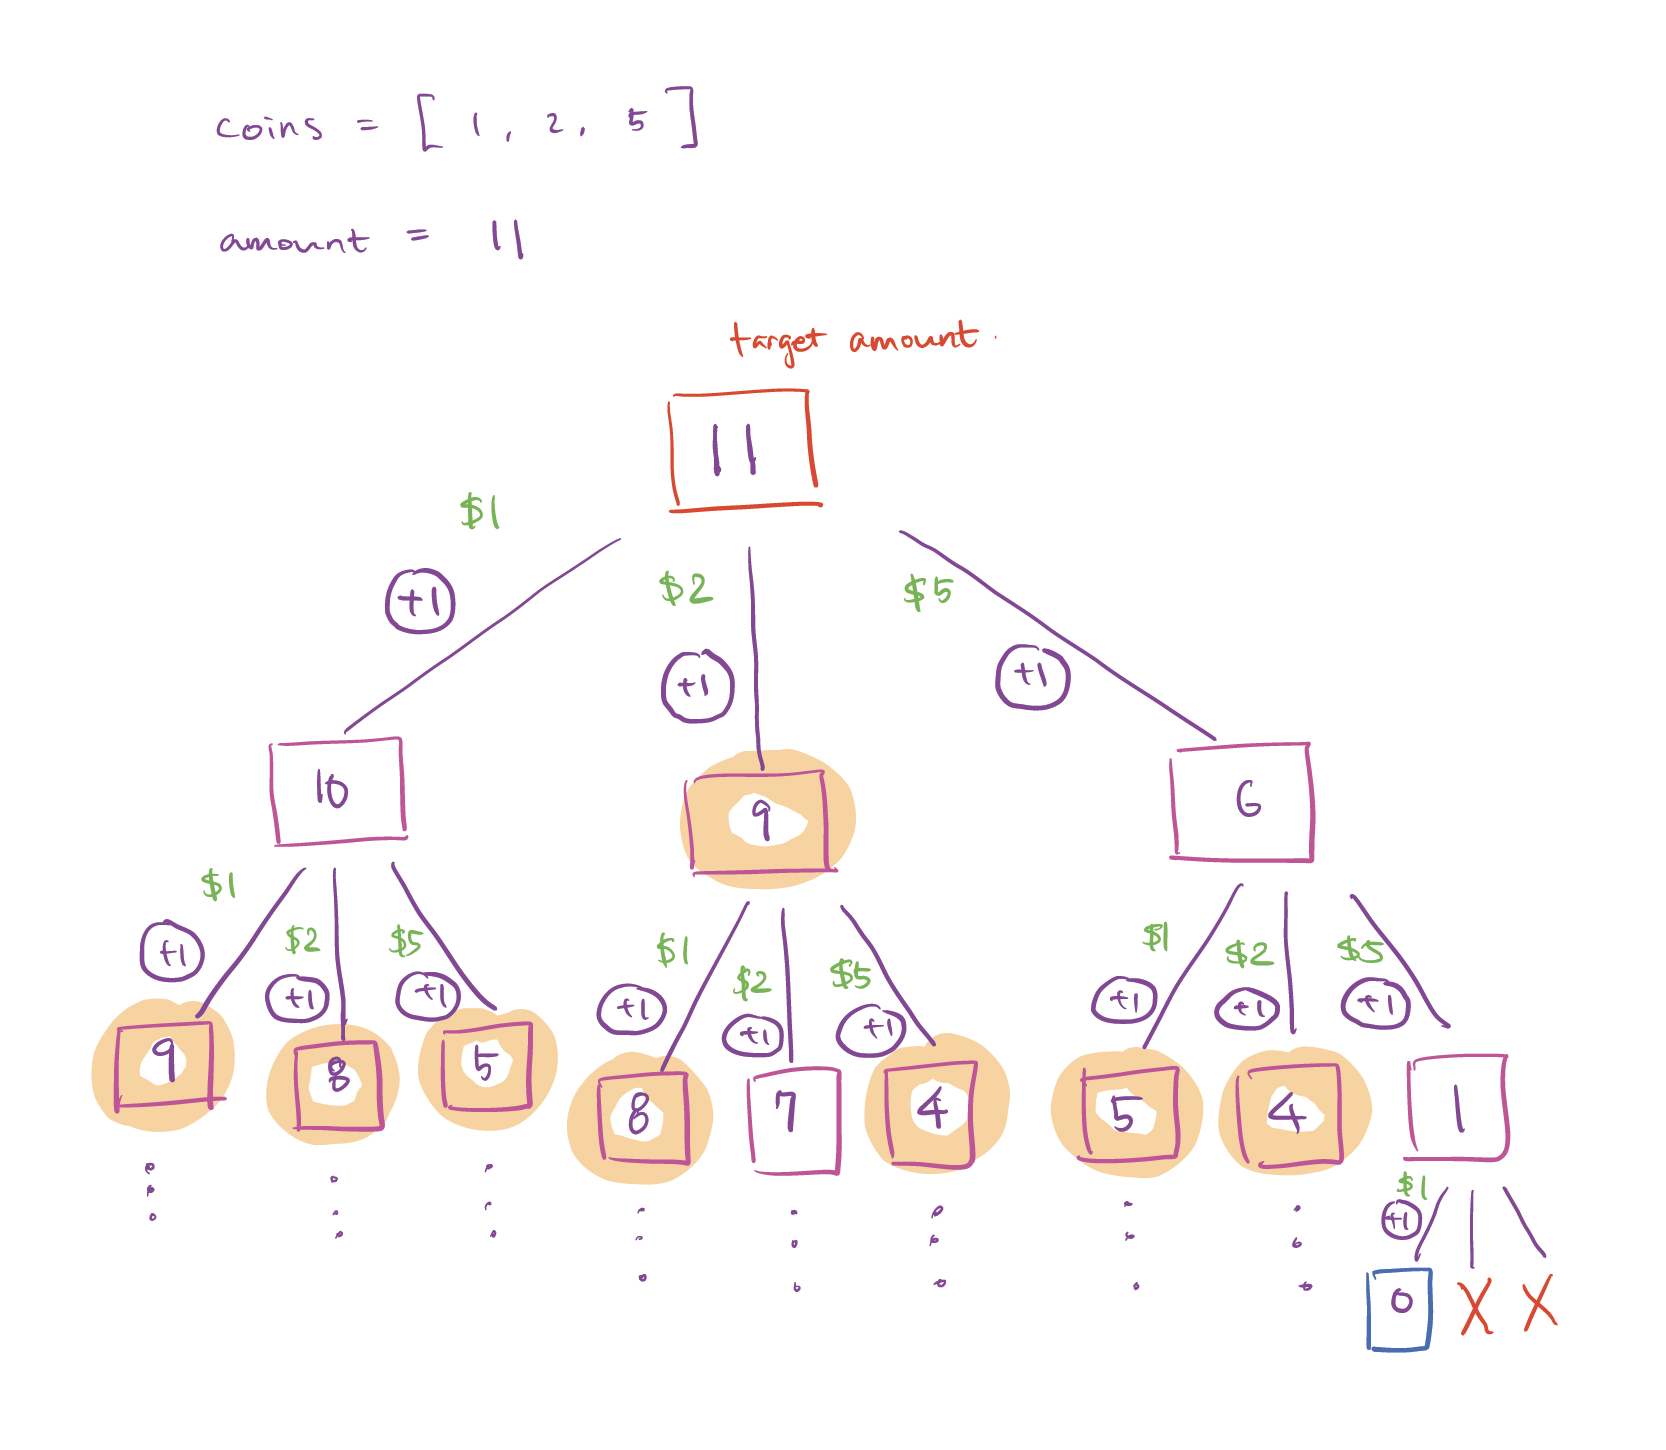 coins = [ 1, 2, 5 ]
amount = 11
target amount.
11
$1
$2
$5
+1
+1
+1
10
9
6
$1
$2
$5
$1
$2
$5
$1
$2
$5
+1
+1
+1
+1
+1
+1
+1
+1
+1
9
8
5
8
7
4
5
4
1
$1
+1
0
X
X